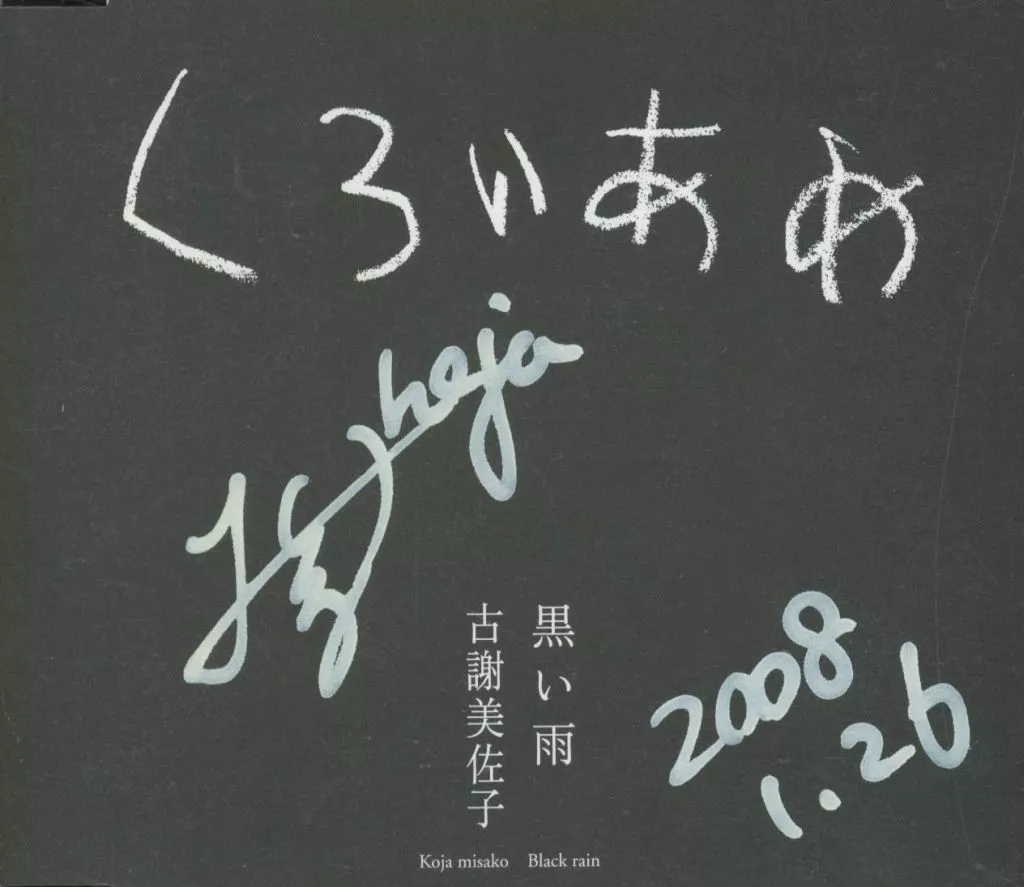 くろいあめ
2008
1.26
黒い雨
古謝美佐子
Koja misako Black rain